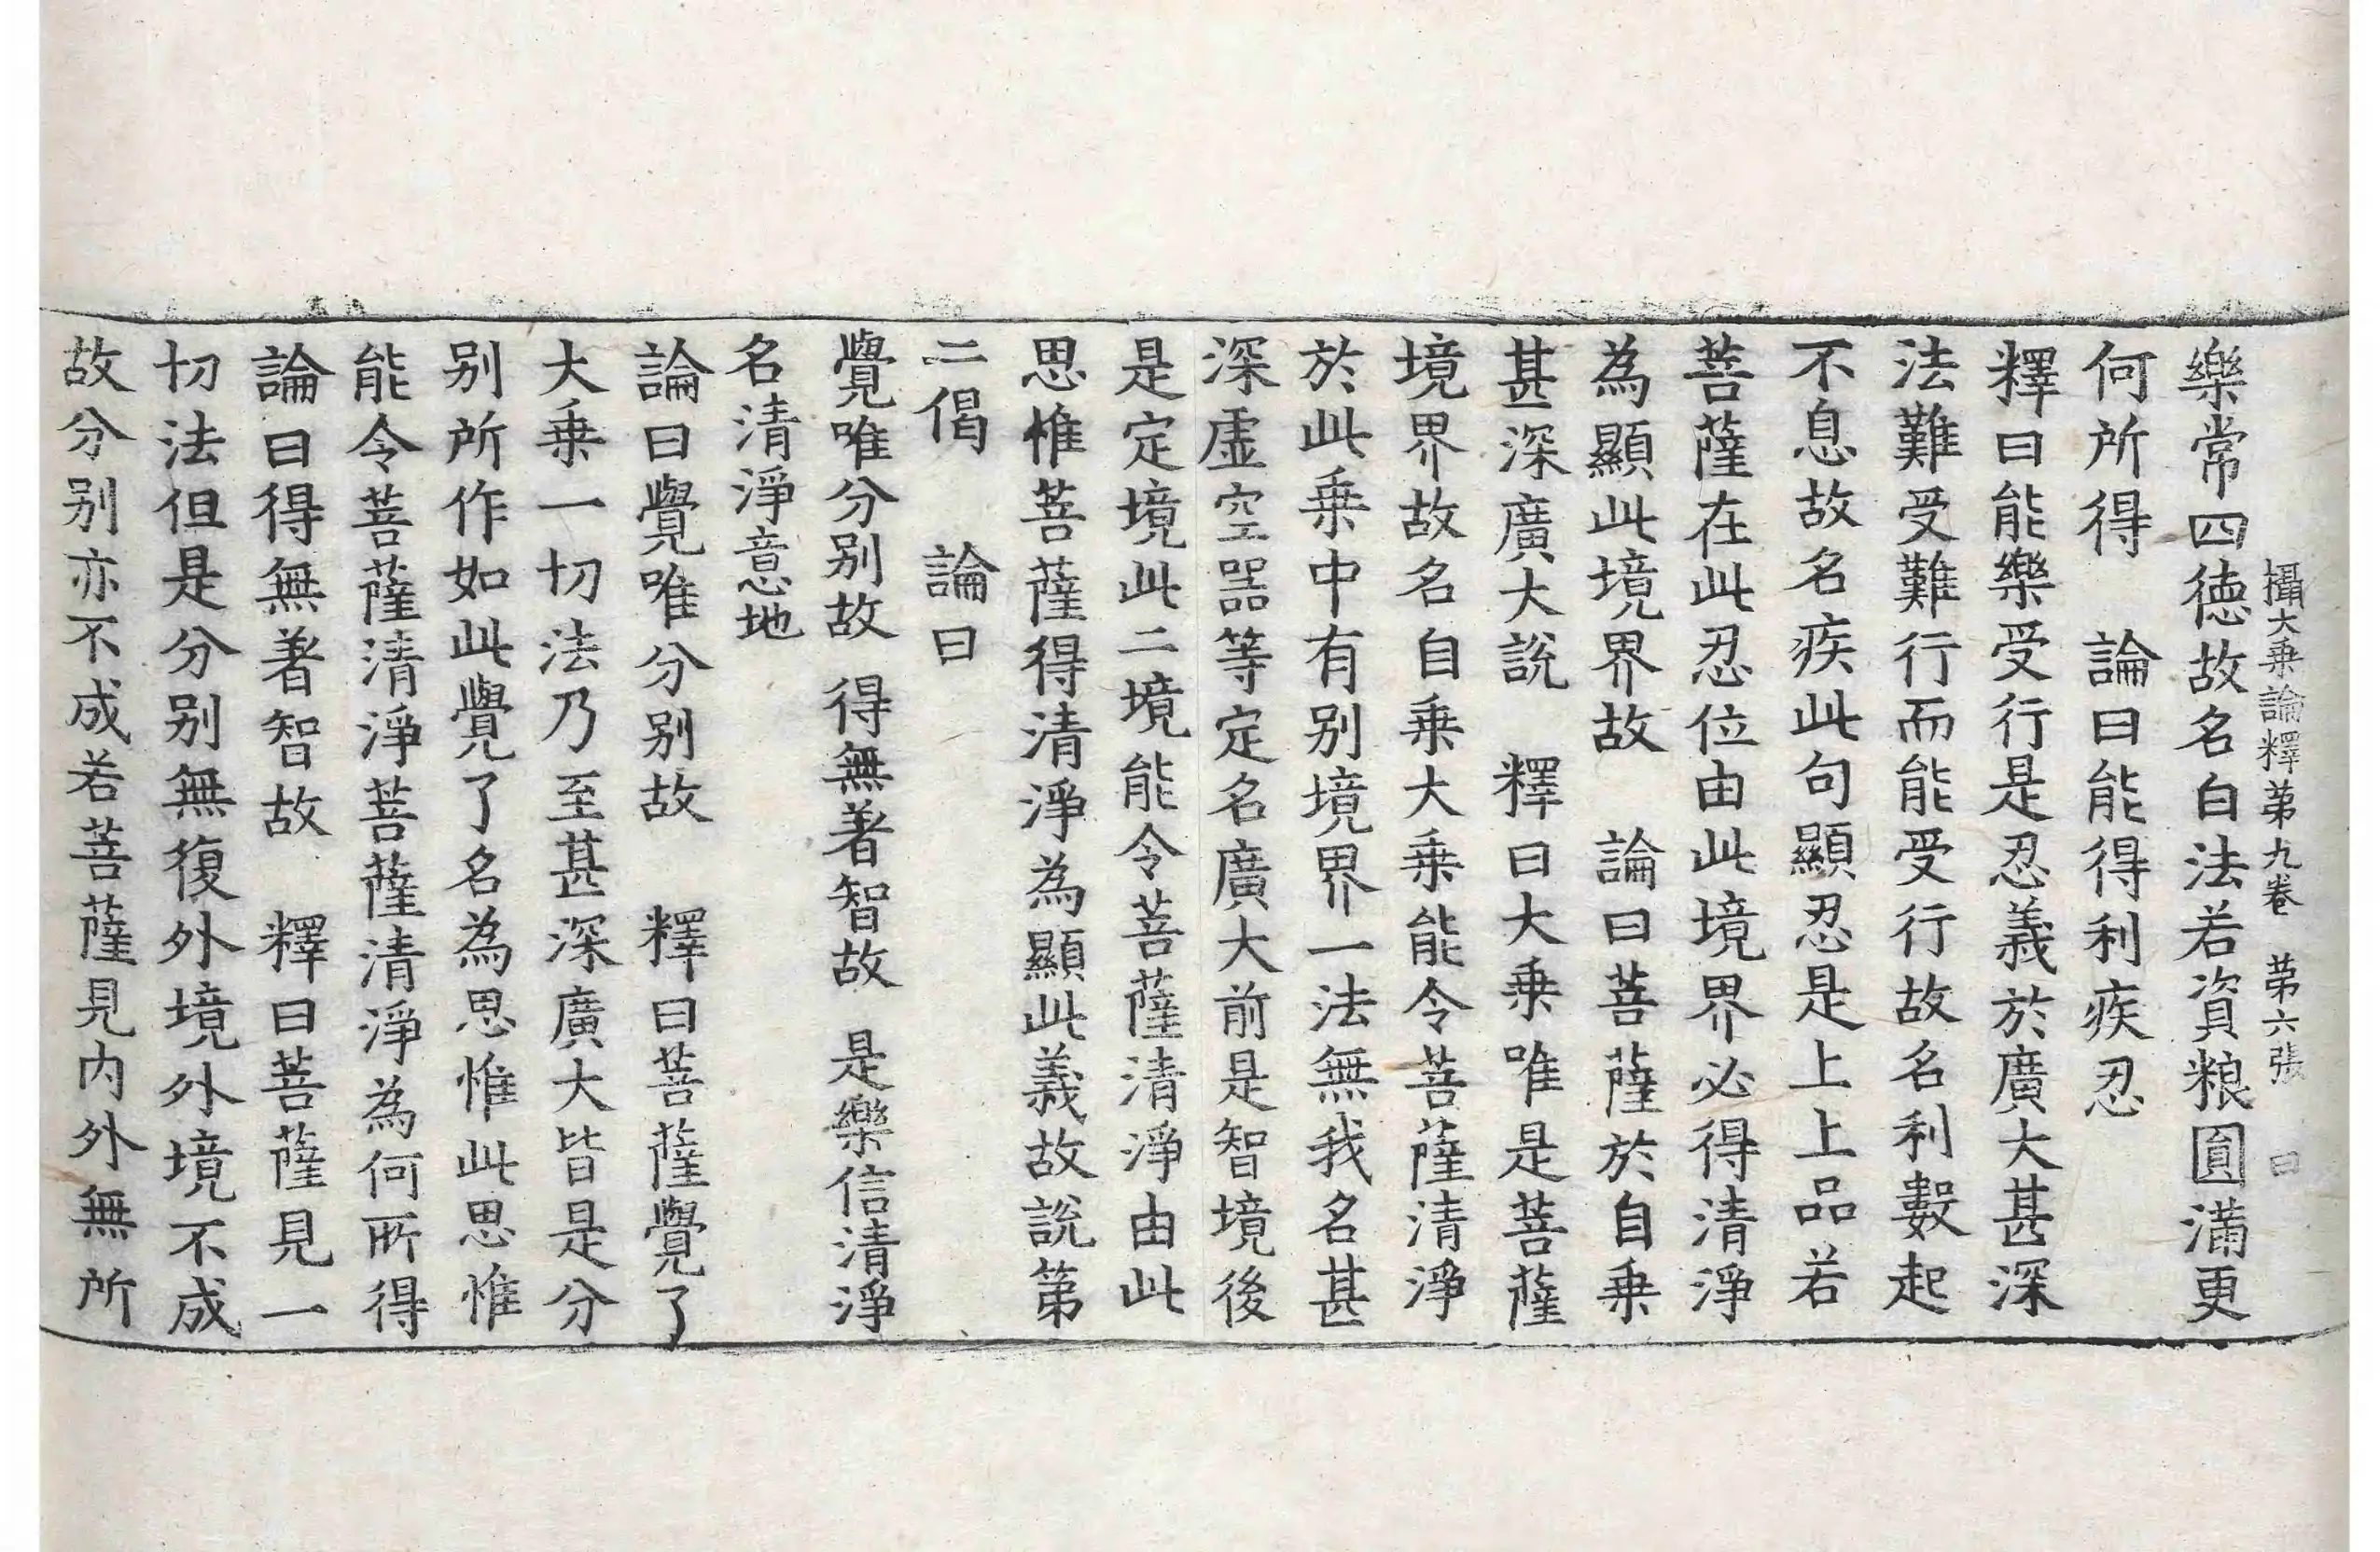 攝大乗論釋苐九卷　苐六張　曰
樂常四徳故名白法若資粮圎滿更
何所得　論曰能得利疾忍
釋曰能樂受行是忍義於廣大甚深
法難受難行而能受行故名利數起
不息故名疾此句顯忍是上上品若
菩薩在此忍位由此境界必得清淨
為顯此境界故　論曰菩薩於自乗
甚深廣大說　釋曰大乗唯是菩薩
境界故名自乗大乗能令菩薩清淨
於此乗中有别境界一法無我名甚
深虚空器等定名廣大前是智境後
是定境此二境能令菩薩清淨由此
思惟菩薩得清淨為顯此義故說苐
二偈　論曰
覺唯分别故　得無著智故　是樂信清淨
名清淨意地
論曰覺唯分别故　釋曰菩薩覺了
大乗一切法乃至甚深廣大皆是分
别所作如此覺了名為思惟此思惟
能令菩薩清淨菩薩清淨為何所得
論曰得無著智故　釋曰菩薩見一
切法但是分别無復外境外境不成
故分别亦不成若菩薩見内外無所